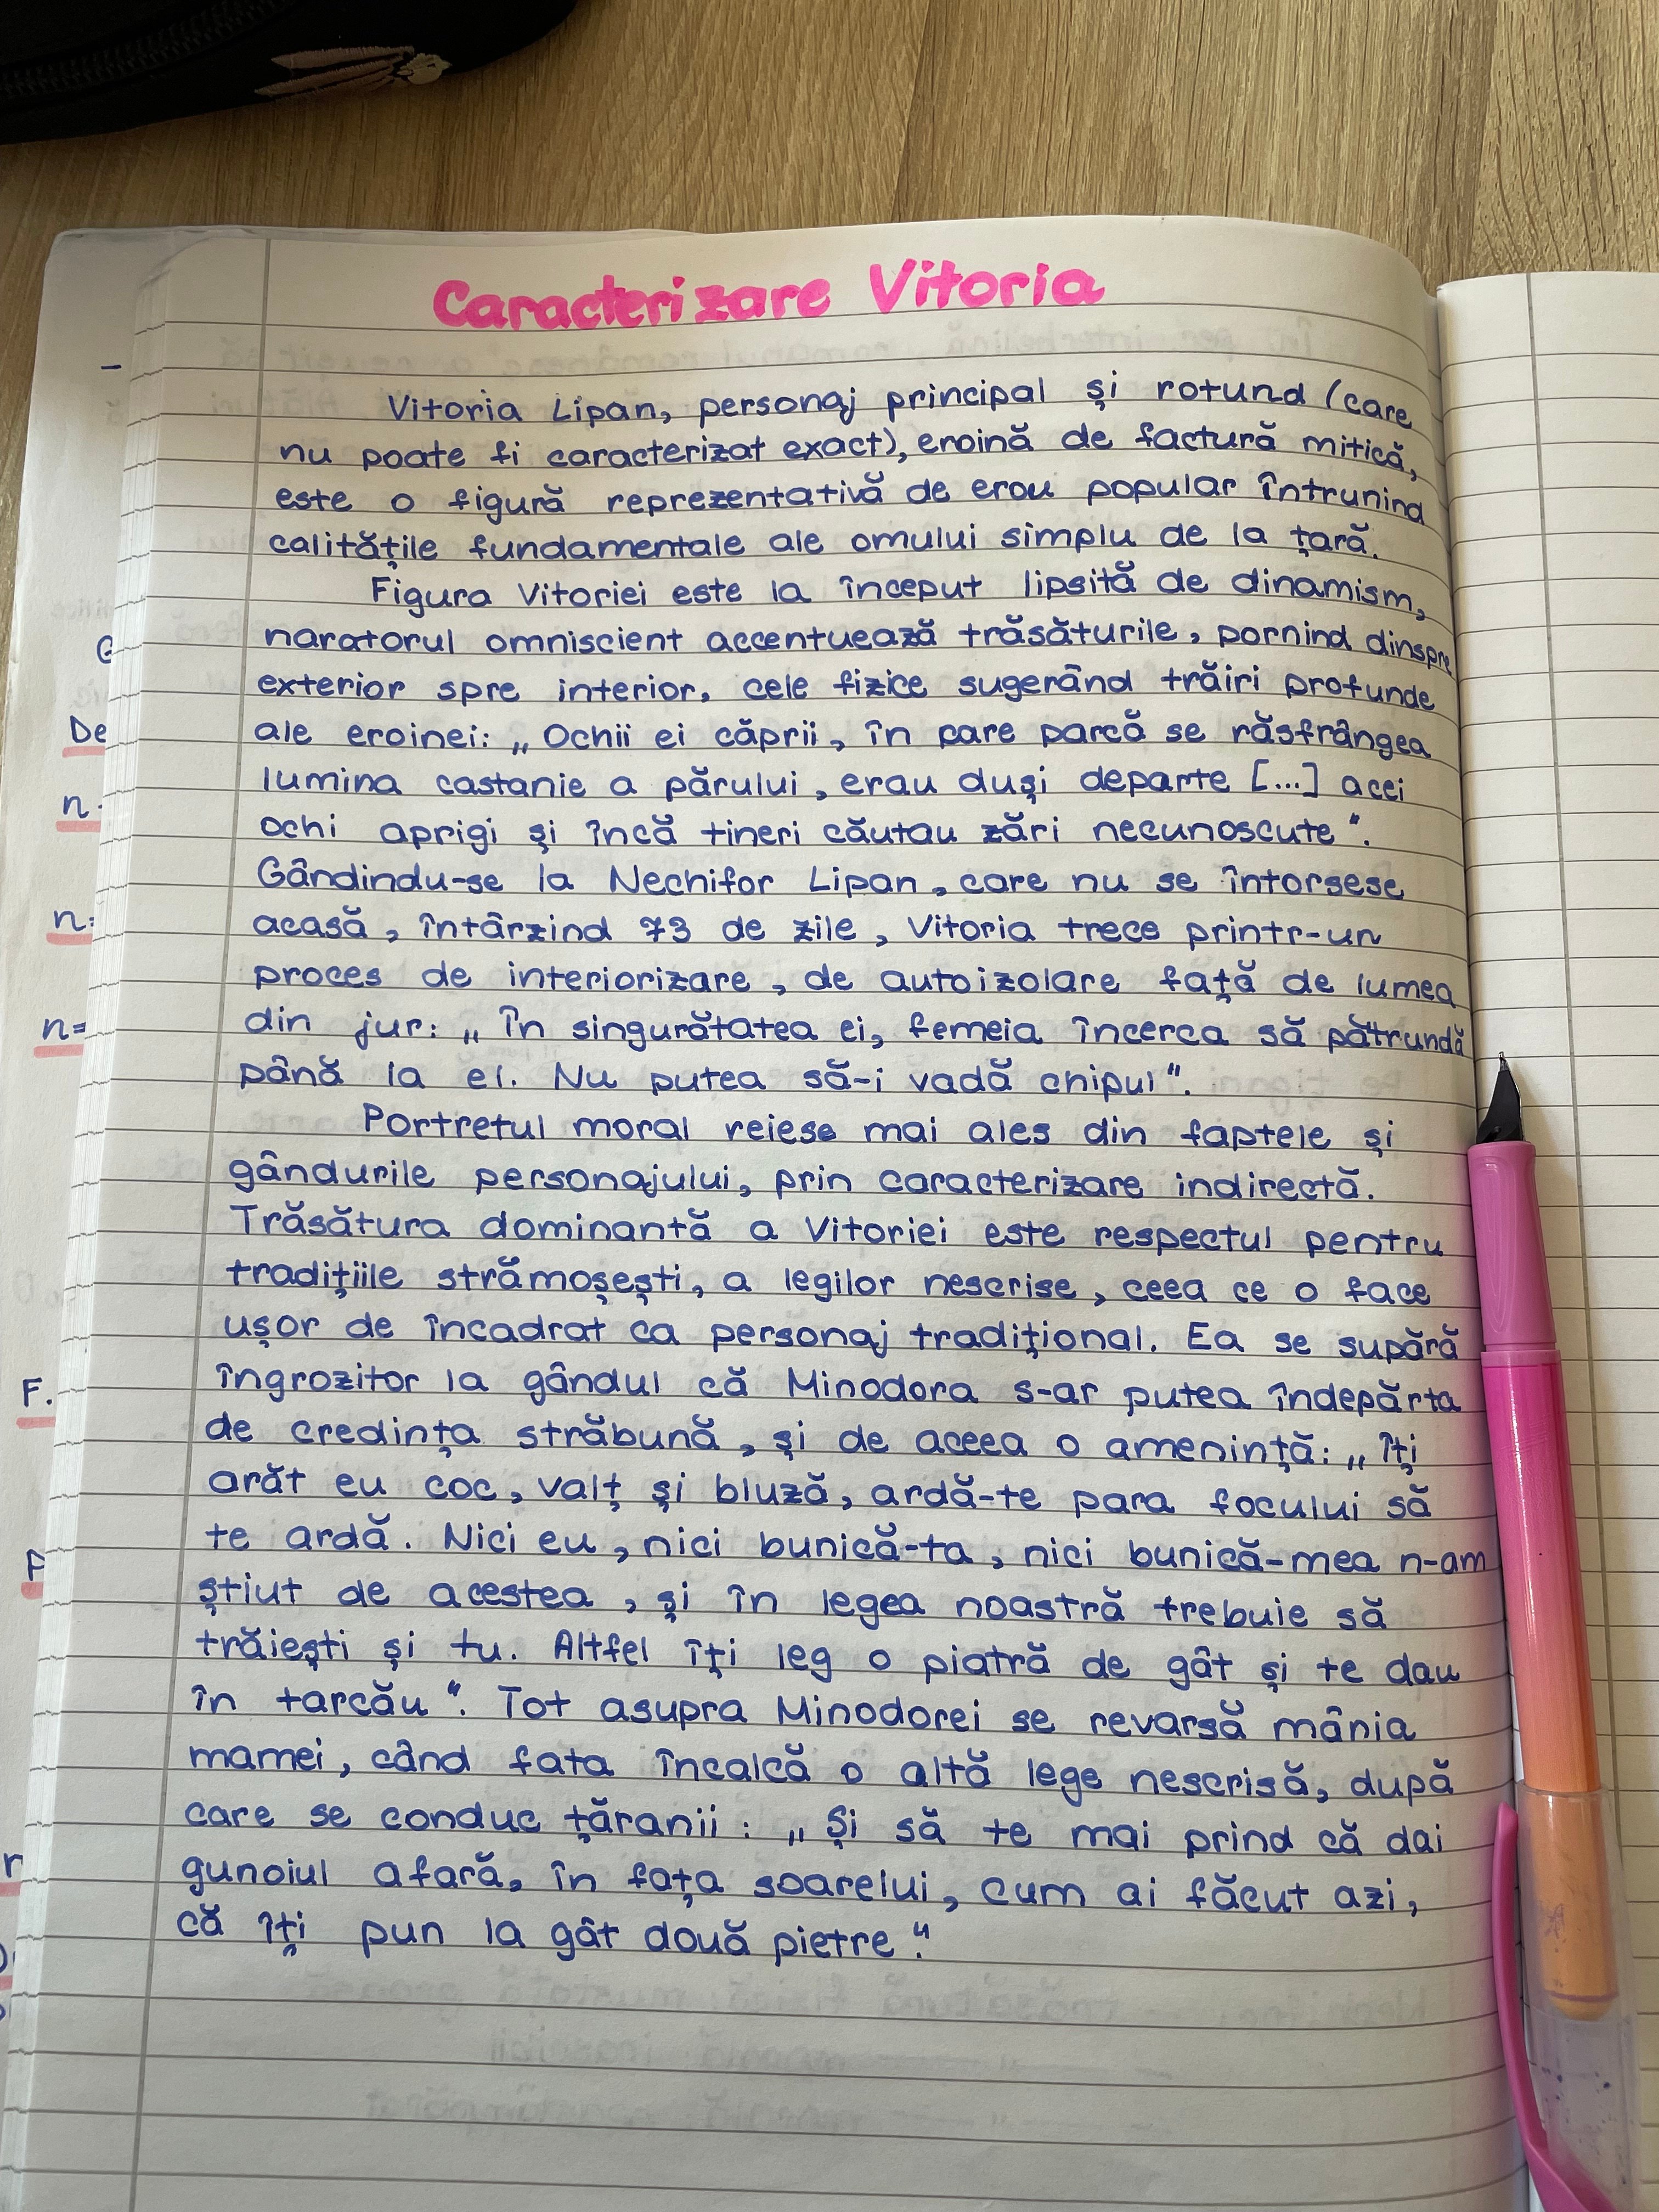 Caracterizare Vitoria
Vitoria Lipan, personaj principal și rotund (care
nu poate fi caracterizat exact), eroină de factură mitică,
este o figură reprezentativă de erou popular întrunind
calitățile fundamentale ale omului simplu de la țară.
Figura Vitoriei este la început lipsită de dinamism,
naratorul omniscient accentuează trăsăturile, pornind dinspre
exterior spre interior, cele fizice sugerând trăiri profunde
ale eroinei: „Ochii ei căprii, în care parcă se răsfrângea
lumina castanie a părului, erau duși departe [...] acei
ochi aprigi și încă tineri căutau zări necunoscute”.
Gândindu-se la Nechifor Lipan, care nu se întorsese
acasă, întârzind 73 de zile, Vitoria trece printr-un
proces de interiorizare, de autoizolare față de lumea
din jur: „În singurătatea ei, femeia încerca să pătrundă
până la el. Nu putea să-i vadă chipul”.
Portretul moral reiese mai ales din faptele și
gândurile personajului, prin caracterizare indirectă.
Trăsătura dominantă a Vitoriei este respectul pentru
tradițiile strămoșești, a legilor nescrise, ceea ce o face
ușor de încadrat ca personaj tradițional. Ea se supără
îngrozitor la gândul că Minodora s-ar putea îndepărta
de credința străbună, și de aceea o amenință: „Îți
arăt eu coc, valț și bluză, ardă-te para focului să
te ardă. Nici eu, nici bunică-ta, nici bunică-mea n-am
știut de acestea, și în legea noastră trebuie să
trăiești și tu. Altfel îți leg o piatră de gât și te dau
în tarcău”. Tot asupra Minodorei se revarsă mânia
mamei, când fata încalcă o altă lege nescrisă, după
care se conduc țăranii: „Și să te mai prind că dai
gunoiul afară, în fața soarelui, cum ai făcut azi,
că îți pun la gât două pietre.”
De
n:
n=
F.